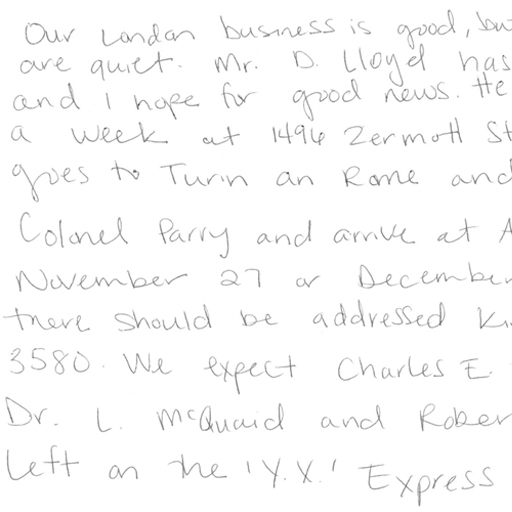 Our London business is good, bu
are quiet. Mr. D. Lloyd has
and I hope for good news. He
a week at 1496 Zermott St
goes to Turin an Rome and
Colonel Parry and arrive at A
November 27 or December
there should be addressed Ki
3580. We expect Charles E.
Dr. L. McQuaid and Rober
Left on the 'Y.X.' Express